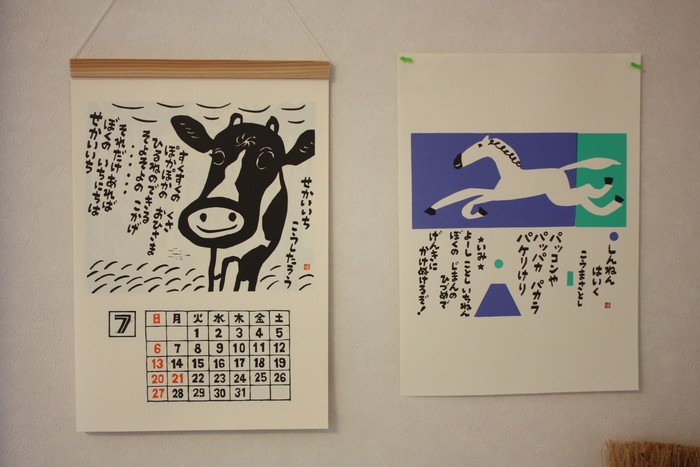 せかいいち
こうしたろう
すくすくの くさ
ぽかぽかの おひさま
ひるねのできる
そよそよの こかげ
・・・・・
それだけあれば
ぼくの いちにちは
せかいいち
7
日 月 火 水 木 金 土
1 2 3 4 5
6 7 8 9 10 11 12
13 14 15 16 17 18 19
20 21 22 23 24 25 26
27 28 29 30 31
しんねん
はいく
こうまさとし
パッコンや
パッパカ パカラ
パケリけり
★いみ★
よーし ことし いちねん
ぼくの じまんの
ひづめで
げんきに
かけぬけるぞ!